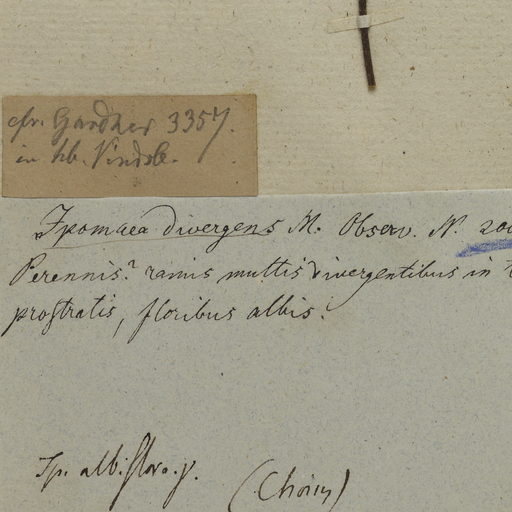 cfr. Gardner 3357.
in hb. Vindob.
Ipomaea divergens M. Observ. N. 200
Perennis? ramis multis divergentibus in
prostratis, floribus albis.
Ip. albiflora. γ.
(Choisy)